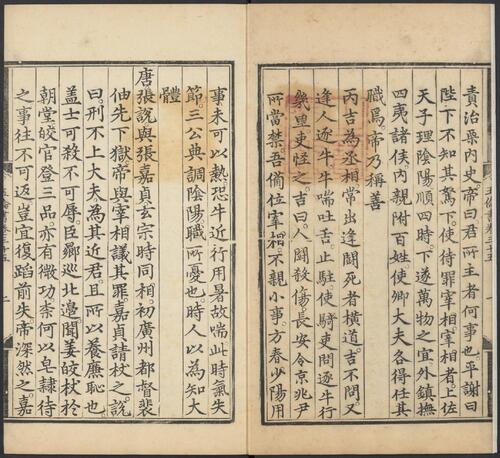 責治粟內史帝曰君所主者何事也平謝曰
陛下不知其駑下使待罪宰相宰相者上佐
天子理陰陽順四時下遂萬物之宜外鎮撫
四夷諸侯內親附百姓使卿大夫各得任其
職焉帝乃稱善
丙吉為丞相常出逢鬪死者橫道吉不問又
逢人逐牛牛喘吐舌止駐使騎吏問逐牛行
幾里吏怪之吉曰人鬪殺傷長安令京兆尹
所當禁吾備位宰相不親小事方春少陽用
事未可以熱恐牛近行用暑故喘此時氣失
節三公典調陰陽職所憂也時人以為知大
體
唐張說與張嘉貞玄宗時同相初廣州都督裴
伷先下獄帝與宰相議其罪嘉貞請杖之說
曰刑不上大夫為其近君且所以養廉恥也
盖士可殺不可辱臣曏巡北邊聞姜皎杖於
朝堂皎官登三品亦有微功柰何以皂隸待
之事往不可返豈宜復蹈前失帝深然之嘉